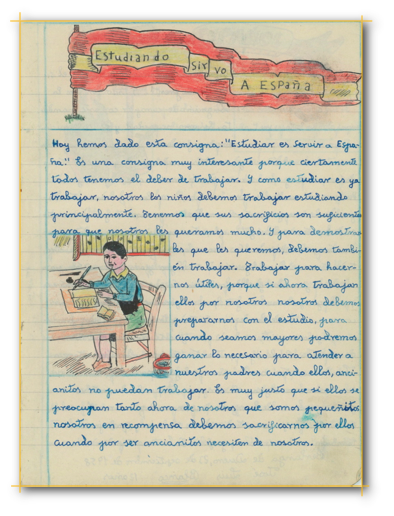 Estudiando sirvo A España
Hoy hemos dado esta consigna: "Estudiar es Servir a Espa-
ña." Es una consigna muy interesante porque ciertamente
todos tenemos el deber de trabajar. Y como estudiar es ya
trabajar, nosotros los niños debemos trabajar estudiando
principalmente. Tenemos que sus sacrificios son suficiente
para que nosotros les queramos mucho. Y para demostrar
les que les queremos, debemos tambi-
én trabajar. Trabajar para hacer-
nos, útiles, porque si ahora trabajan
ellos por nosotros nosotros debemos
prepararnos con el estudio, para
cuando seamos mayores podremos
ganar lo necesario para atender a
nuestros padres cuando ellos, anci-
anitos no puedan trabajar. Es muy justo que si ellos se
preocupan tanto ahora de nosotros que somos pequeñitos
nosotros en recompensa debemos sacrificarnos por ellos
cuando por ser ancianitos necesiten de nosotros.